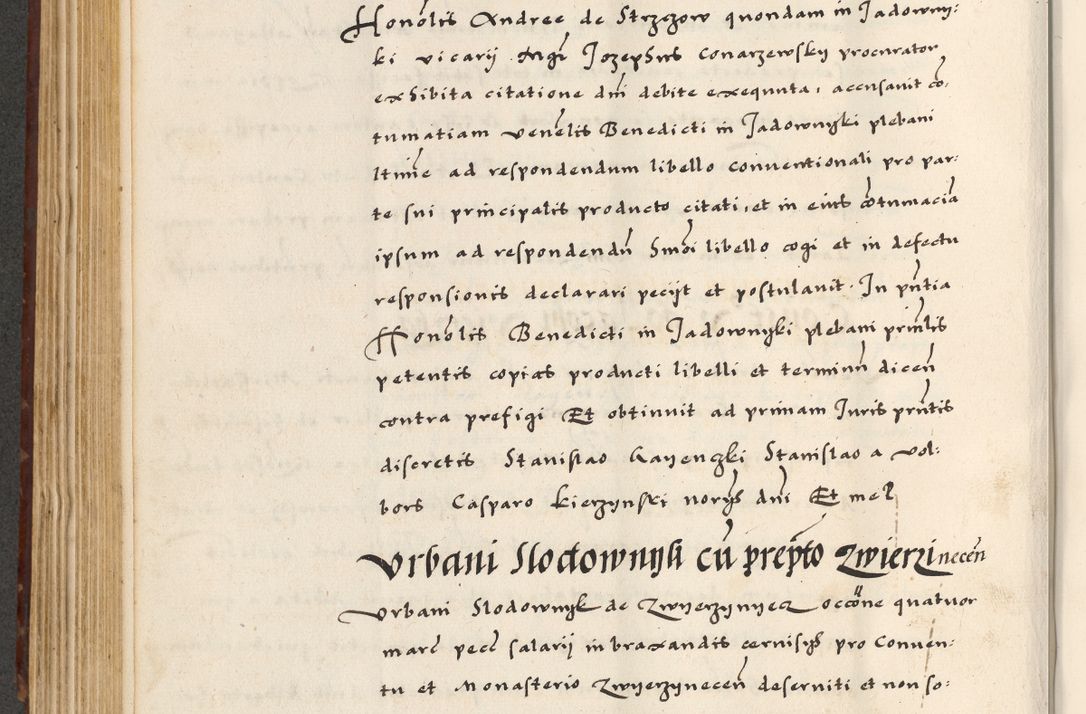 Honolis Andree de Strzezow quondam in Jadowny:
ki vicarij Mgr Jozephus Conarzewskij procurator
exhibita citatione dni debite exequuta, accusavit co:
tumatiam venelis Benedicti in Jadownyki plebani
ltime ad respondendum libello conventionali pro par:
te sui principalis producto citati, et in eius cotumacia
ipsum ad respondendu libello cogi et in defectu
responsionis declarari peciit et postulavit. In pntia
Honolis Benedicti in Jadownyki plebani prinlis
petentis copias producti libelli et terminu dicen
contra prefigi Et obtinuit ad primam Juris prntis
discretis Stanislao Stanislao a Vol:
bors Casparo Kierzynski norijs dni Et me
Urbani Slodownijk cu prepto Zwierzinecen
Urbani Slodownyk de Zwyerzynyecz occone quatuor
marc pecc salarij in braxandis cervisijs pro Conven:
tu et Monasterio Zwyerzynecen deserviti et non so: